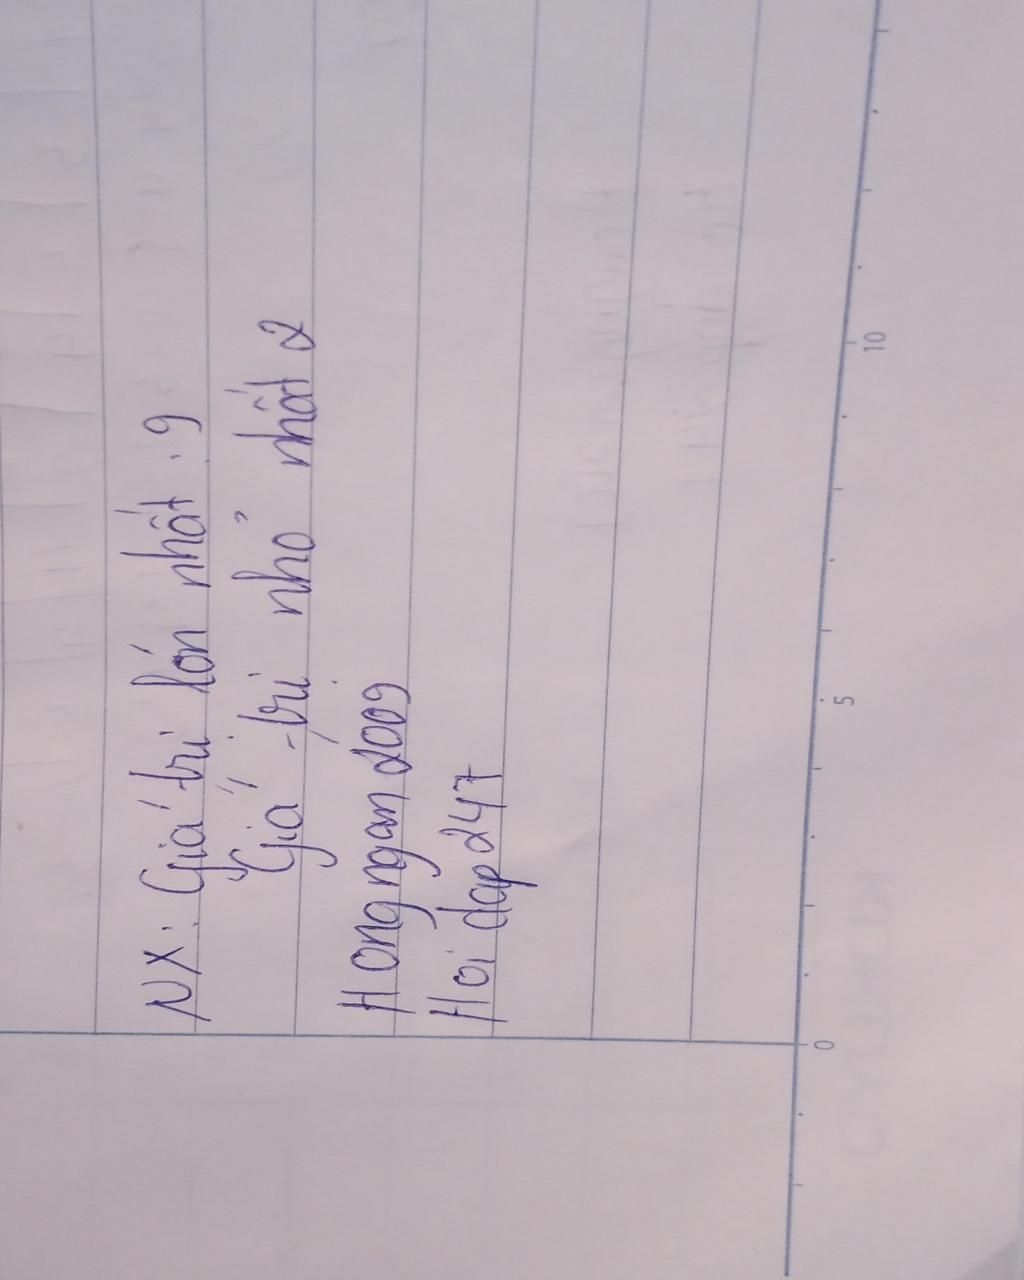 NX: Giá trị lớn nhất: 9
Giá trị nhỏ nhất 2
Hongngan2009
Hoi dap247
0 5 10